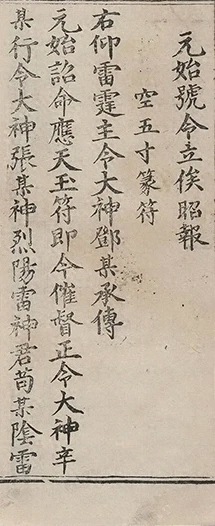 元始號令立俟昭報
空五寸篆符
右仰雷霆主令大神鄧某承傳
元始詔命應天玉符即今催督正令大神辛
某行令大神張某神烈陽雷神君苟某陰雷